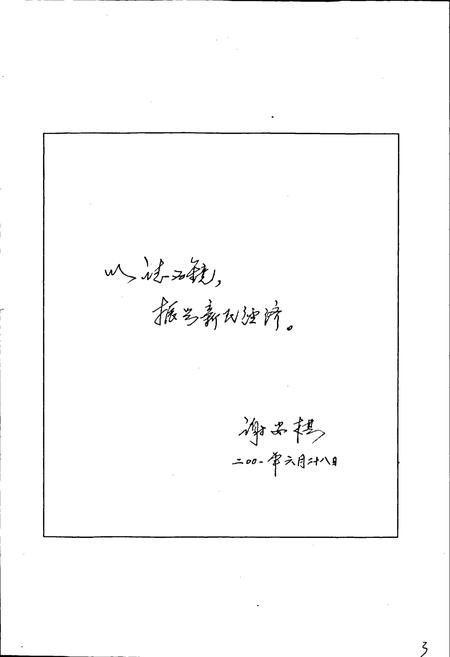 以志为镜，
振兴新民经济。
谢安棋
二〇〇一年六月二十八日
3